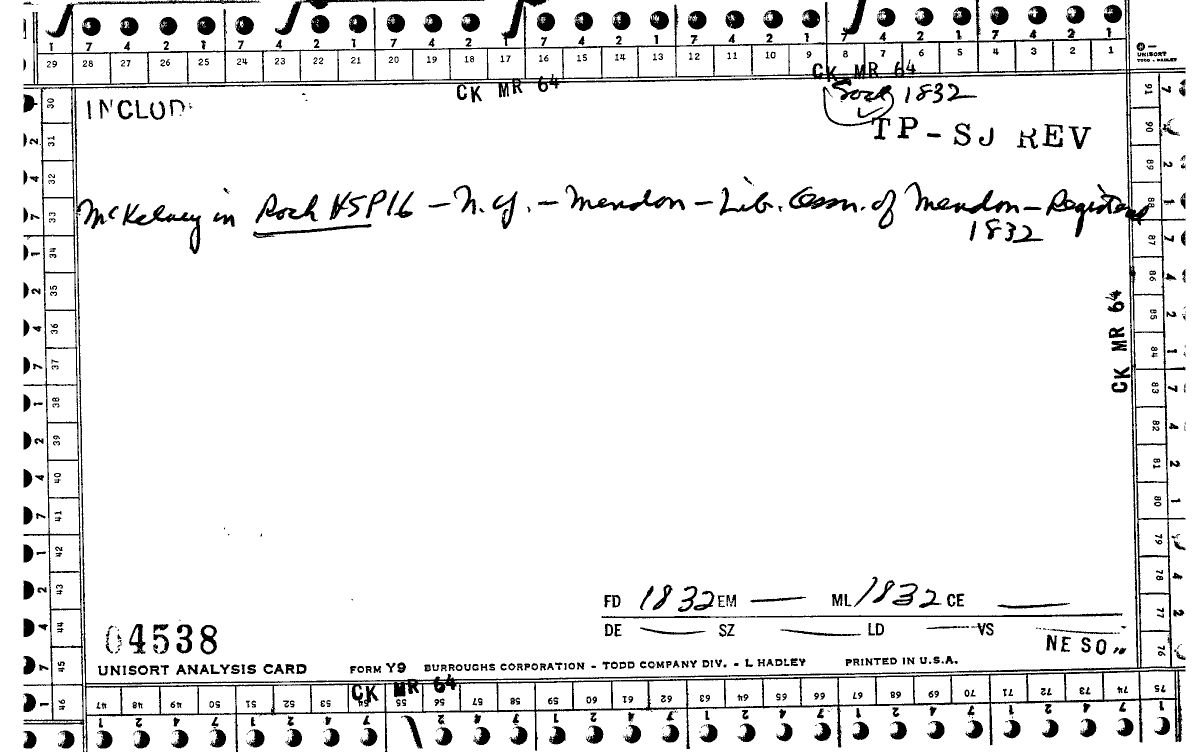 7 4 2 1 7 4 2 1 7 4 2 1 7 4 2 1 7 4 2 1 7 4 2 1
29 28 27 26 25 24 23 22 21 20 19 18 17 16 15 14 13 12 11 10 9 8 7 6 5 4 3 2 1
UNISORT
TODD - HADLEY
CK MR 64
CK MR 64
INCLUD
1832
TP-SJ REV
McKelvey in Roch HSP16 - N.Y. - Mendon - Lib. Assn. of Mendon - Registers
1832
CK MR 64
30 31 32 33 34 35 36 37 38 39 40 41 42 43 44 45 46
91 90 89 88 87 86 85 84 83 82 81 80 79 78 77 76 75
FD 1832 EM — ML 1832 CE —
DE — SZ — LD — VS —
NE SO
04538
UNISORT ANALYSIS CARD FORM Y9 BURROUGHS CORPORATION - TODD COMPANY DIV. - L HADLEY PRINTED IN U.S.A.
CK MR 64
47 48 49 50 51 52 53 54 55 56 57 58 59 60 61 62 63 64 65 66 67 68 69 70 71 72 73 74